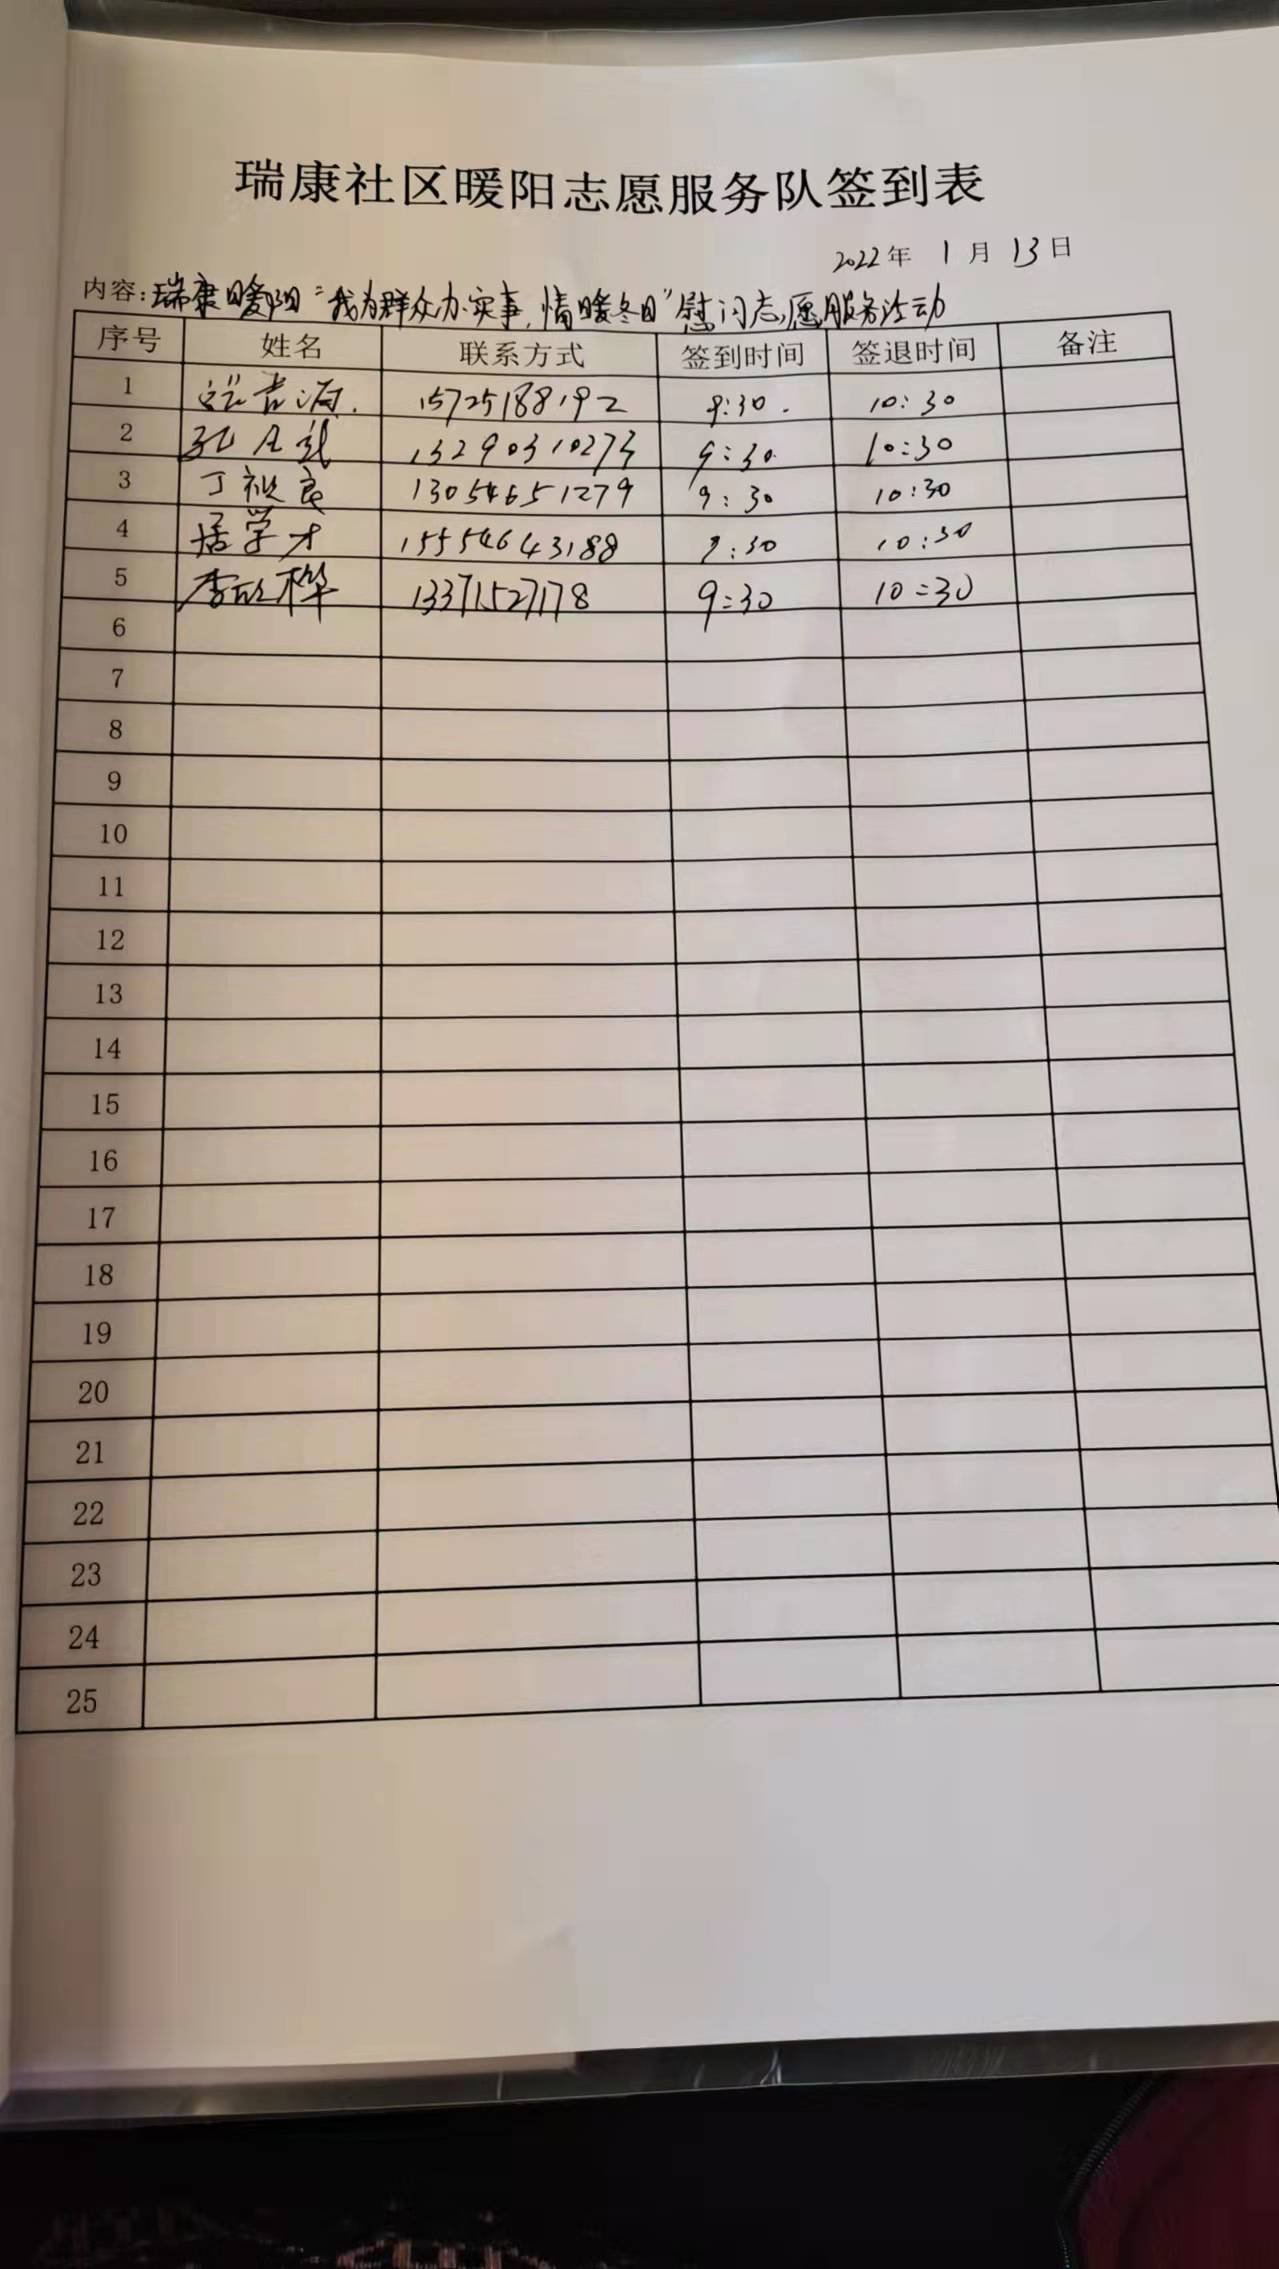 瑞康社区暖阳志愿服务队签到表
2022年 1月 13日
内容:瑞康暖阳"我为群众办实事,情暖冬日"慰问志愿服务活动
序号 姓名 联系方式 签到时间 签退时间 备注
1 15725188192 9:30. 10:30
2 13290310273 9:30 10:30
3 丁 良 13054651279 9:30 10:30
4 居学才 15554643188 9:30 10:30
5 李欣桦 13371527178 9:30 10:30
6
7
8
9
10
11
12
13
14
15
16
17
18
19
20
21
22
23
24
25